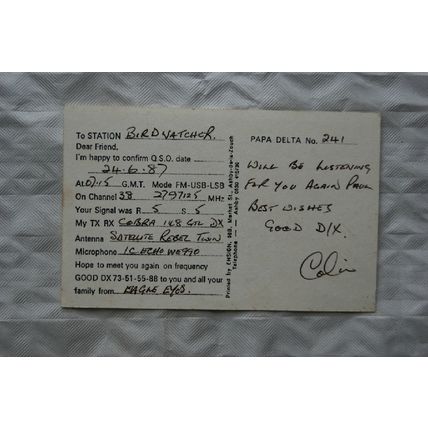 To STATION BIRDWATCHER.
Dear Friend.
I'm happy to confirm Q.S.O. date
24-6-87
At 0715 G.M.T. Mode FM-USB-LSB
On Channel 38 MHz
Your Signal was R 5 S 5
My TX RX COBRA 148 GTL DX
Antenna SATELLITE REBEL TWIN
Microphone
Hope to meet you again on frequency
GOOD DX 73-51-55-88 to you and all your
family from EAGLE EYES.
Printed by ENSIGN, 98B, Market St. Ashby-de-la-Zouch
Telephone — Ashby
PAPA DELTA No. 241
WILL BE LISTENING
FOR YOU AGAIN PAUL
BEST WISHES
GOOD D/X.
Colin